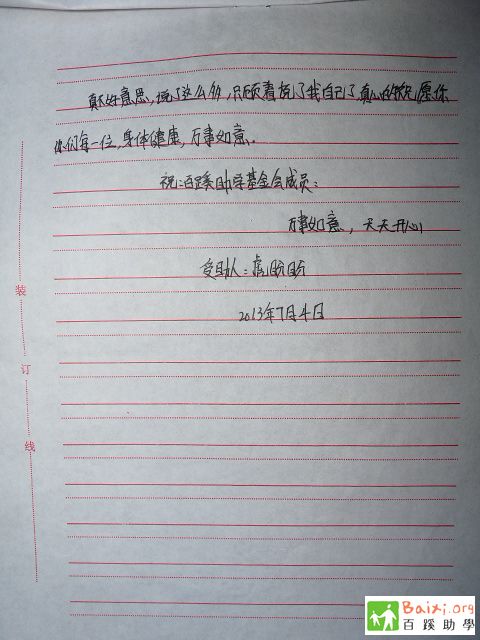 真不好意思,说了这么多,只顾着说了我自己了,真心的祝愿你
你们每一位,身体健康,万事如意。
祝:百蹊助学基金会成员:
万事如意,天天开心
受助人:盼盼
2013年7月4日
装
订
线
Baixi.org
百蹊助學